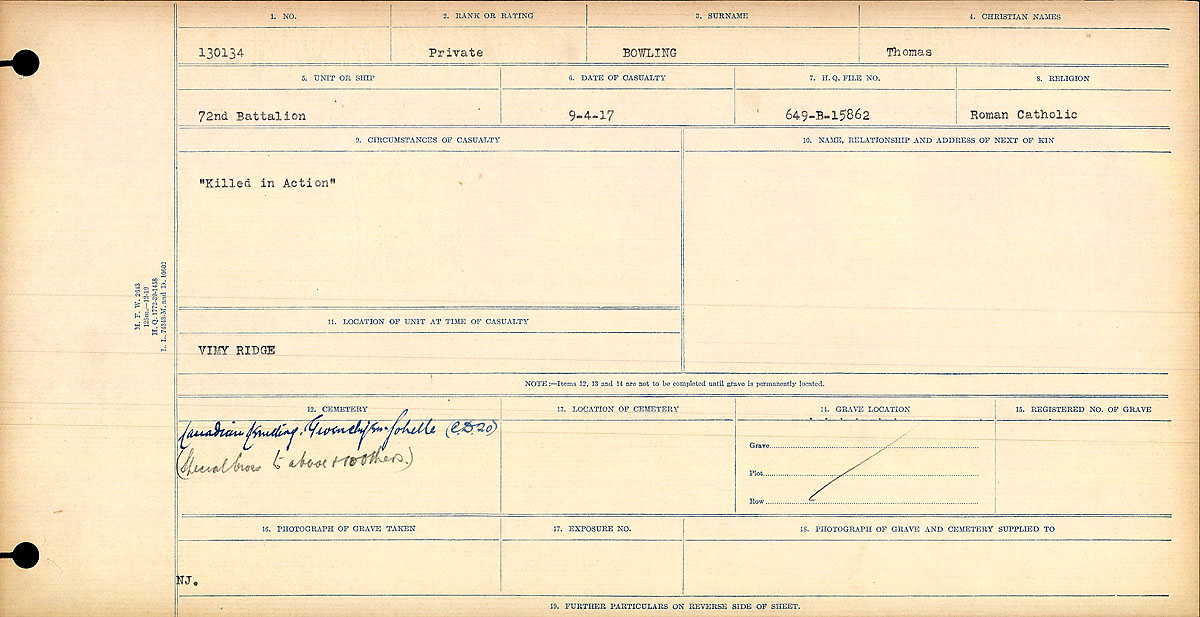 1. NO. 2. RANK OR RATING 3. SURNAME 4. CHRISTIAN NAMES
130134 Private BOWLING Thomas
5. UNIT OR SHIP 6. DATE OF CASUALTY 7. H.Q. FILE NO. 8. RELIGION
72nd Battalion 9-4-17 649-B-15862 Roman Catholic
9. CIRCUMSTANCES OF CASUALTY 10. NAME, RELATIONSHIP AND ADDRESS OF NEXT OF KIN
"Killed in Action"
M. F. W. 2643
125m.—12-19
H. Q. 1772-39-1458
L. L. 74343-M. and D. 10602
11. LOCATION OF UNIT AT TIME OF CASUALTY
VIMY RIDGE
NOTE:—Items 12, 13 and 14 are not to be completed until grave is permanently located.
12. CEMETERY 13. LOCATION OF CEMETERY 14. GRAVE LOCATION 15. REGISTERED NO. OF GRAVE
Canadian Cemetery, Givenchy en Gohelle (C.D.20)
Grave
(Special Cross to above + 100 others.)
Plot
Row
16. PHOTOGRAPH OF GRAVE TAKEN 17. EXPOSURE NO. 18. PHOTOGRAPH OF GRAVE AND CEMETERY SUPPLIED TO
NJ.
19. FURTHER PARTICULARS ON REVERSE SIDE OF SHEET.